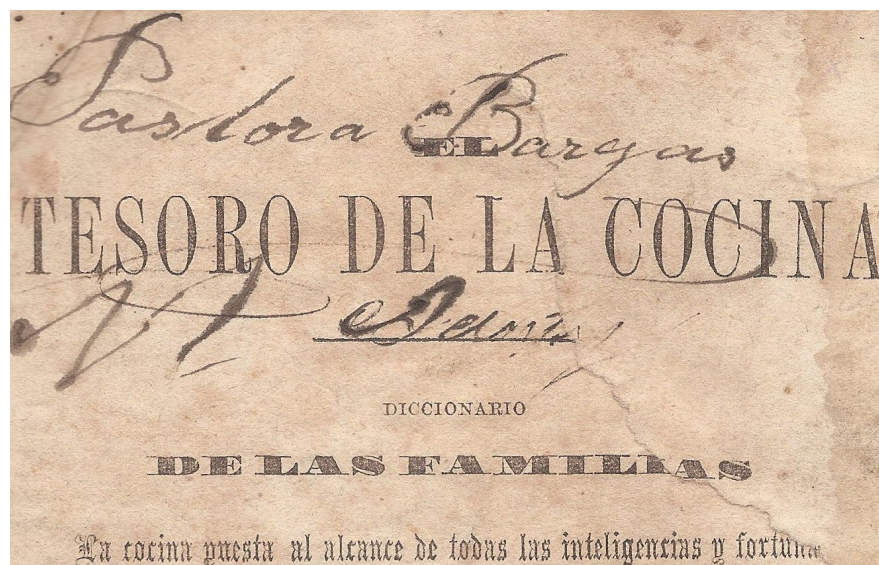 Pastora Bargas
EL
TESORO DE LA COCINA
DICCIONARIO
DE LAS FAMILIAS
La cocina puesta al alcance de todas las inteligencias y